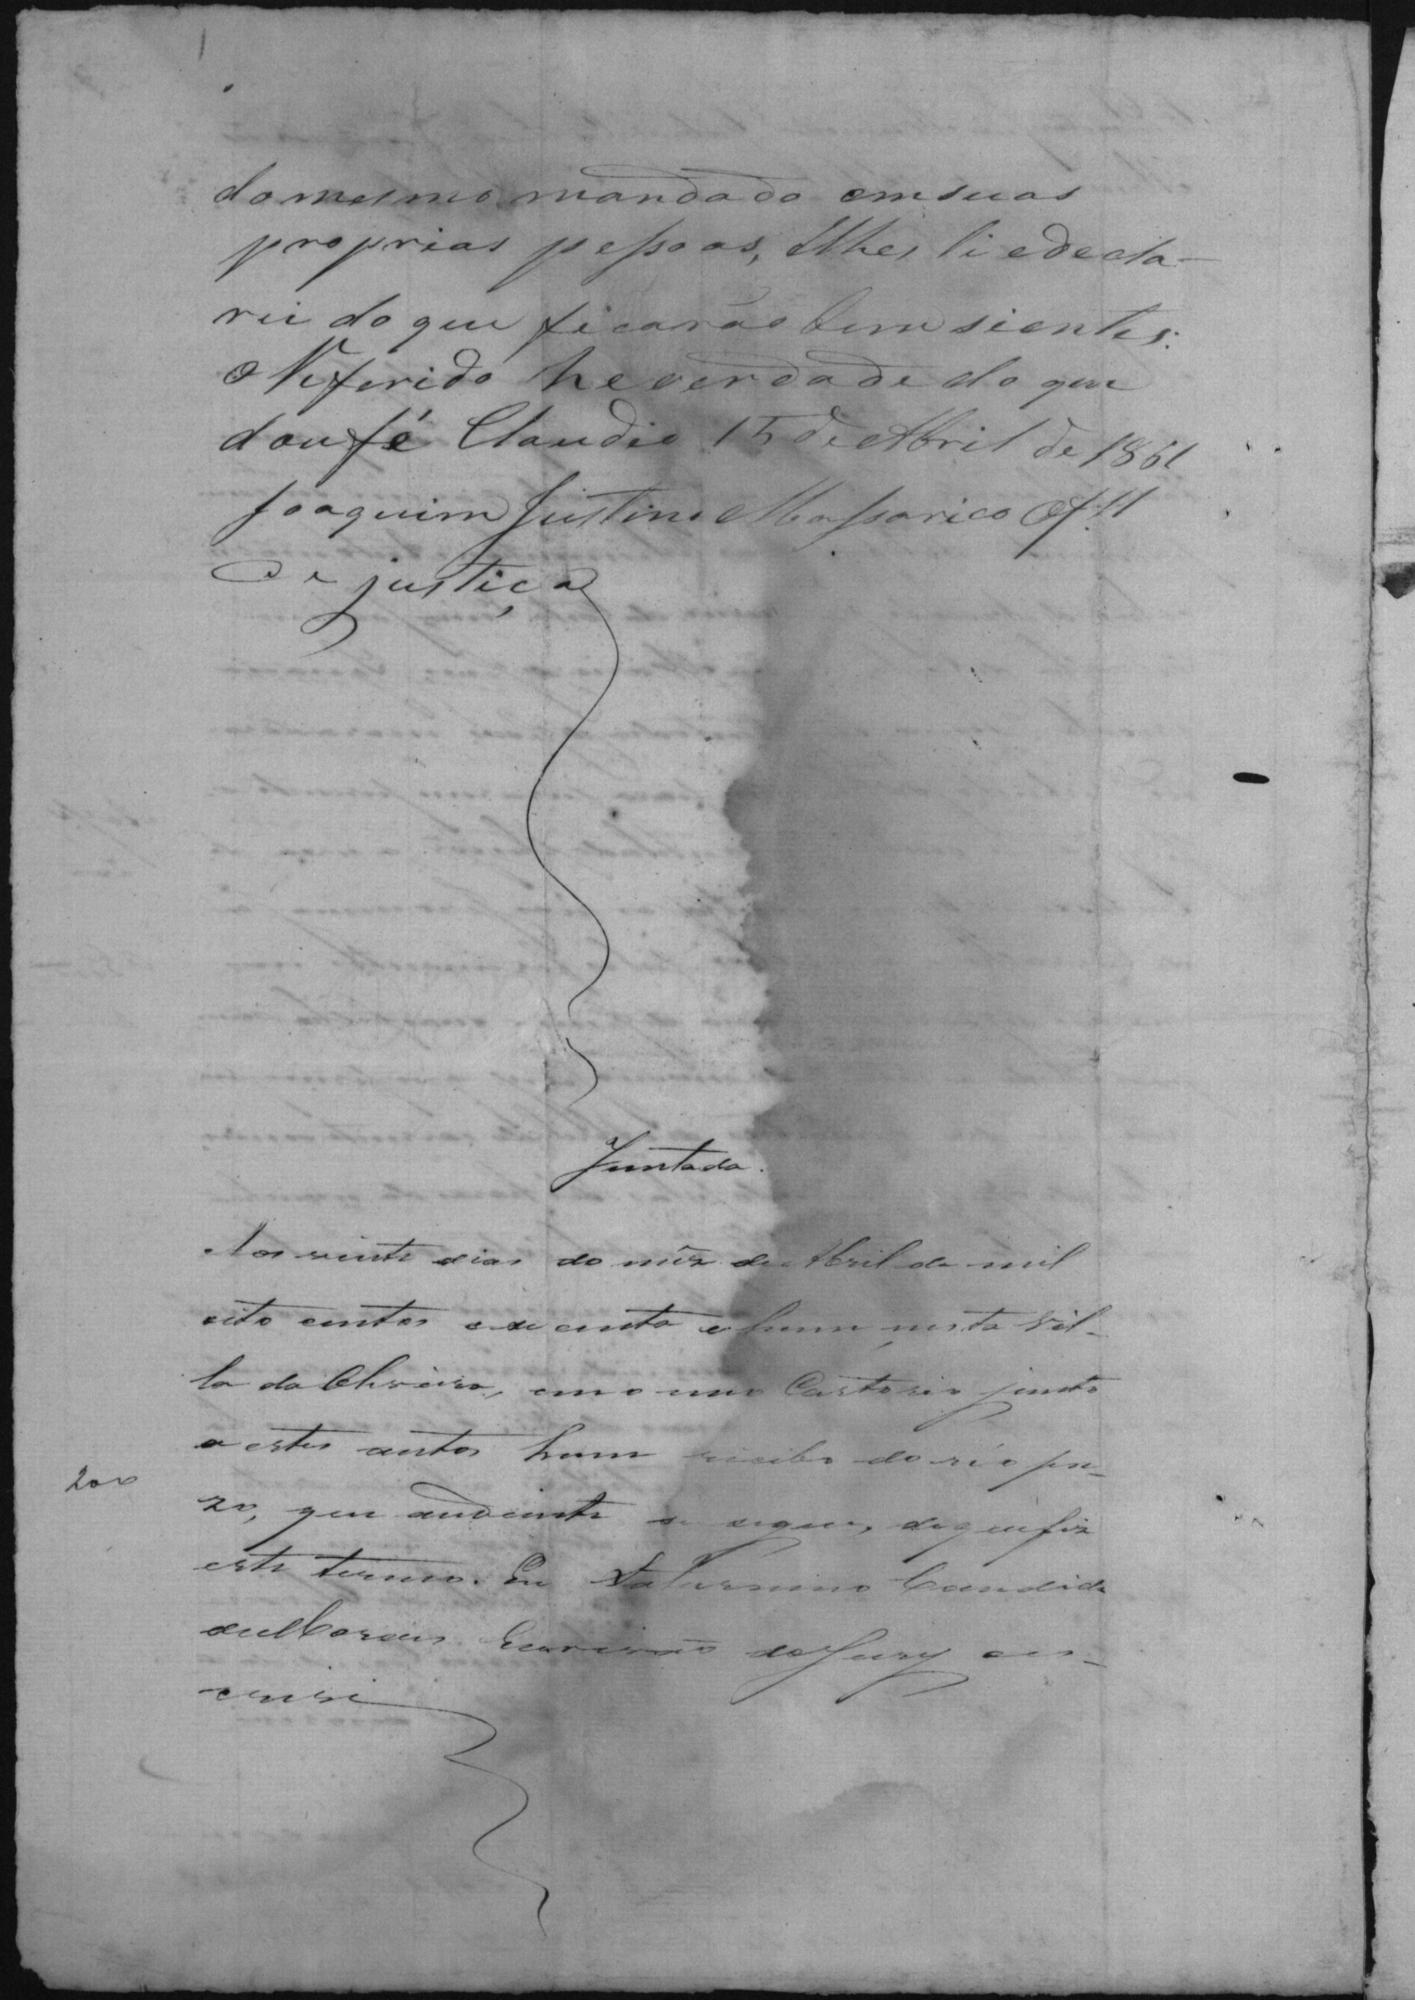 do mesmo mandado em suas
proprias pessoas, e lhes li e decla-
rei do que ficarão bem sientes.
O Referido he verdade do que
dou fé Claudio 15 de Abril de 1861
Joaquim Justino Massarico Off.al
de justiça
Juntada.
Aos vinte dias do mêz de Abril de mil
oito centos e secenta e hum, nesta Vil-
la da Oliveira, em o meu Cartorio junto
a estes autos hum recibo do réo pre-
zo, que audiente se segue, do que fiz
200
este termo. Eu Saturnino Candido
de Moraes Escrivão do Jury o es-
crivi